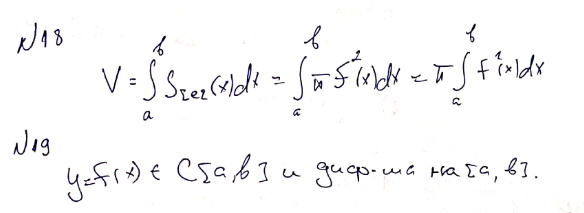 N18
V = ∫ₐᵇ Sсеч(x)dx = ∫ₐᵇ π f²(x)dx = π ∫ₐᵇ f²(x)dx
N19
y=f(x) ∈ C[a,b] и диф-ма на [a,b].